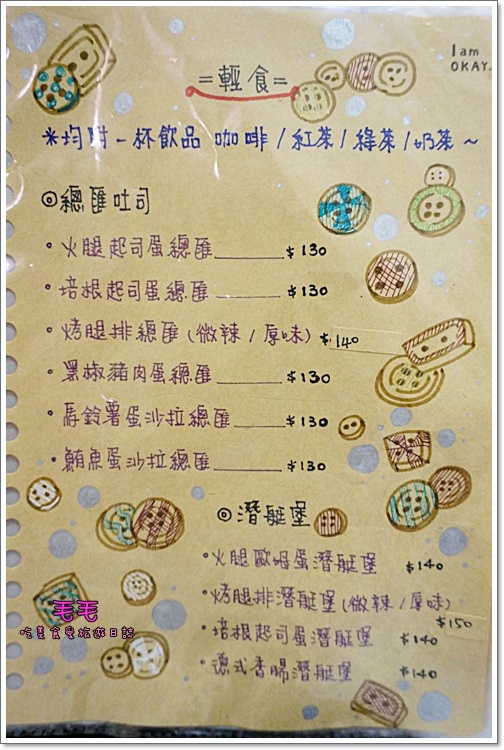 I am
OKAY.
=輕食=
※均附一杯飲品 咖啡/紅茶/綠茶/奶茶~
◎總匯吐司
·火腿起司蛋總匯______$130
·培根起司蛋總匯______$130
·烤腿排總匯(微辣/原味) $140
·黑椒豬肉蛋總匯______$130
·馬鈴薯蛋沙拉總匯____$130
·鮪魚蛋沙拉總匯______$130
◎潛艇堡
·火腿歐姆蛋潛艇堡 $140
·烤腿排潛艇堡(微辣/原味) $150
·培根起司蛋潛艇堡 $140
·德式香腸潛艇堡 $140
毛毛
吃喜食愛旅遊日誌